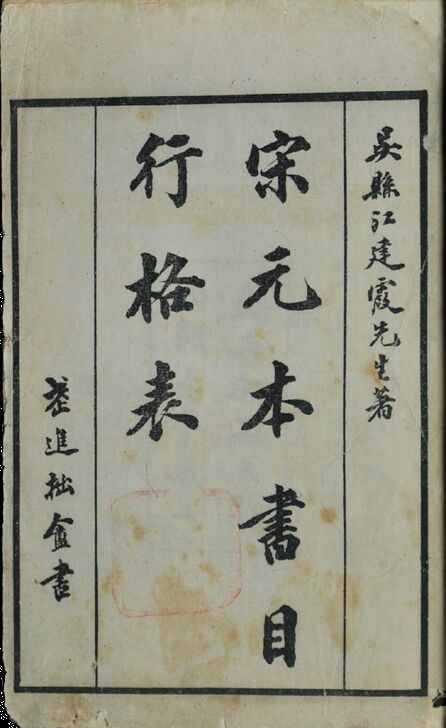 吳縣江建霞先生著
宋元本書目
行格表
武進拙盦書